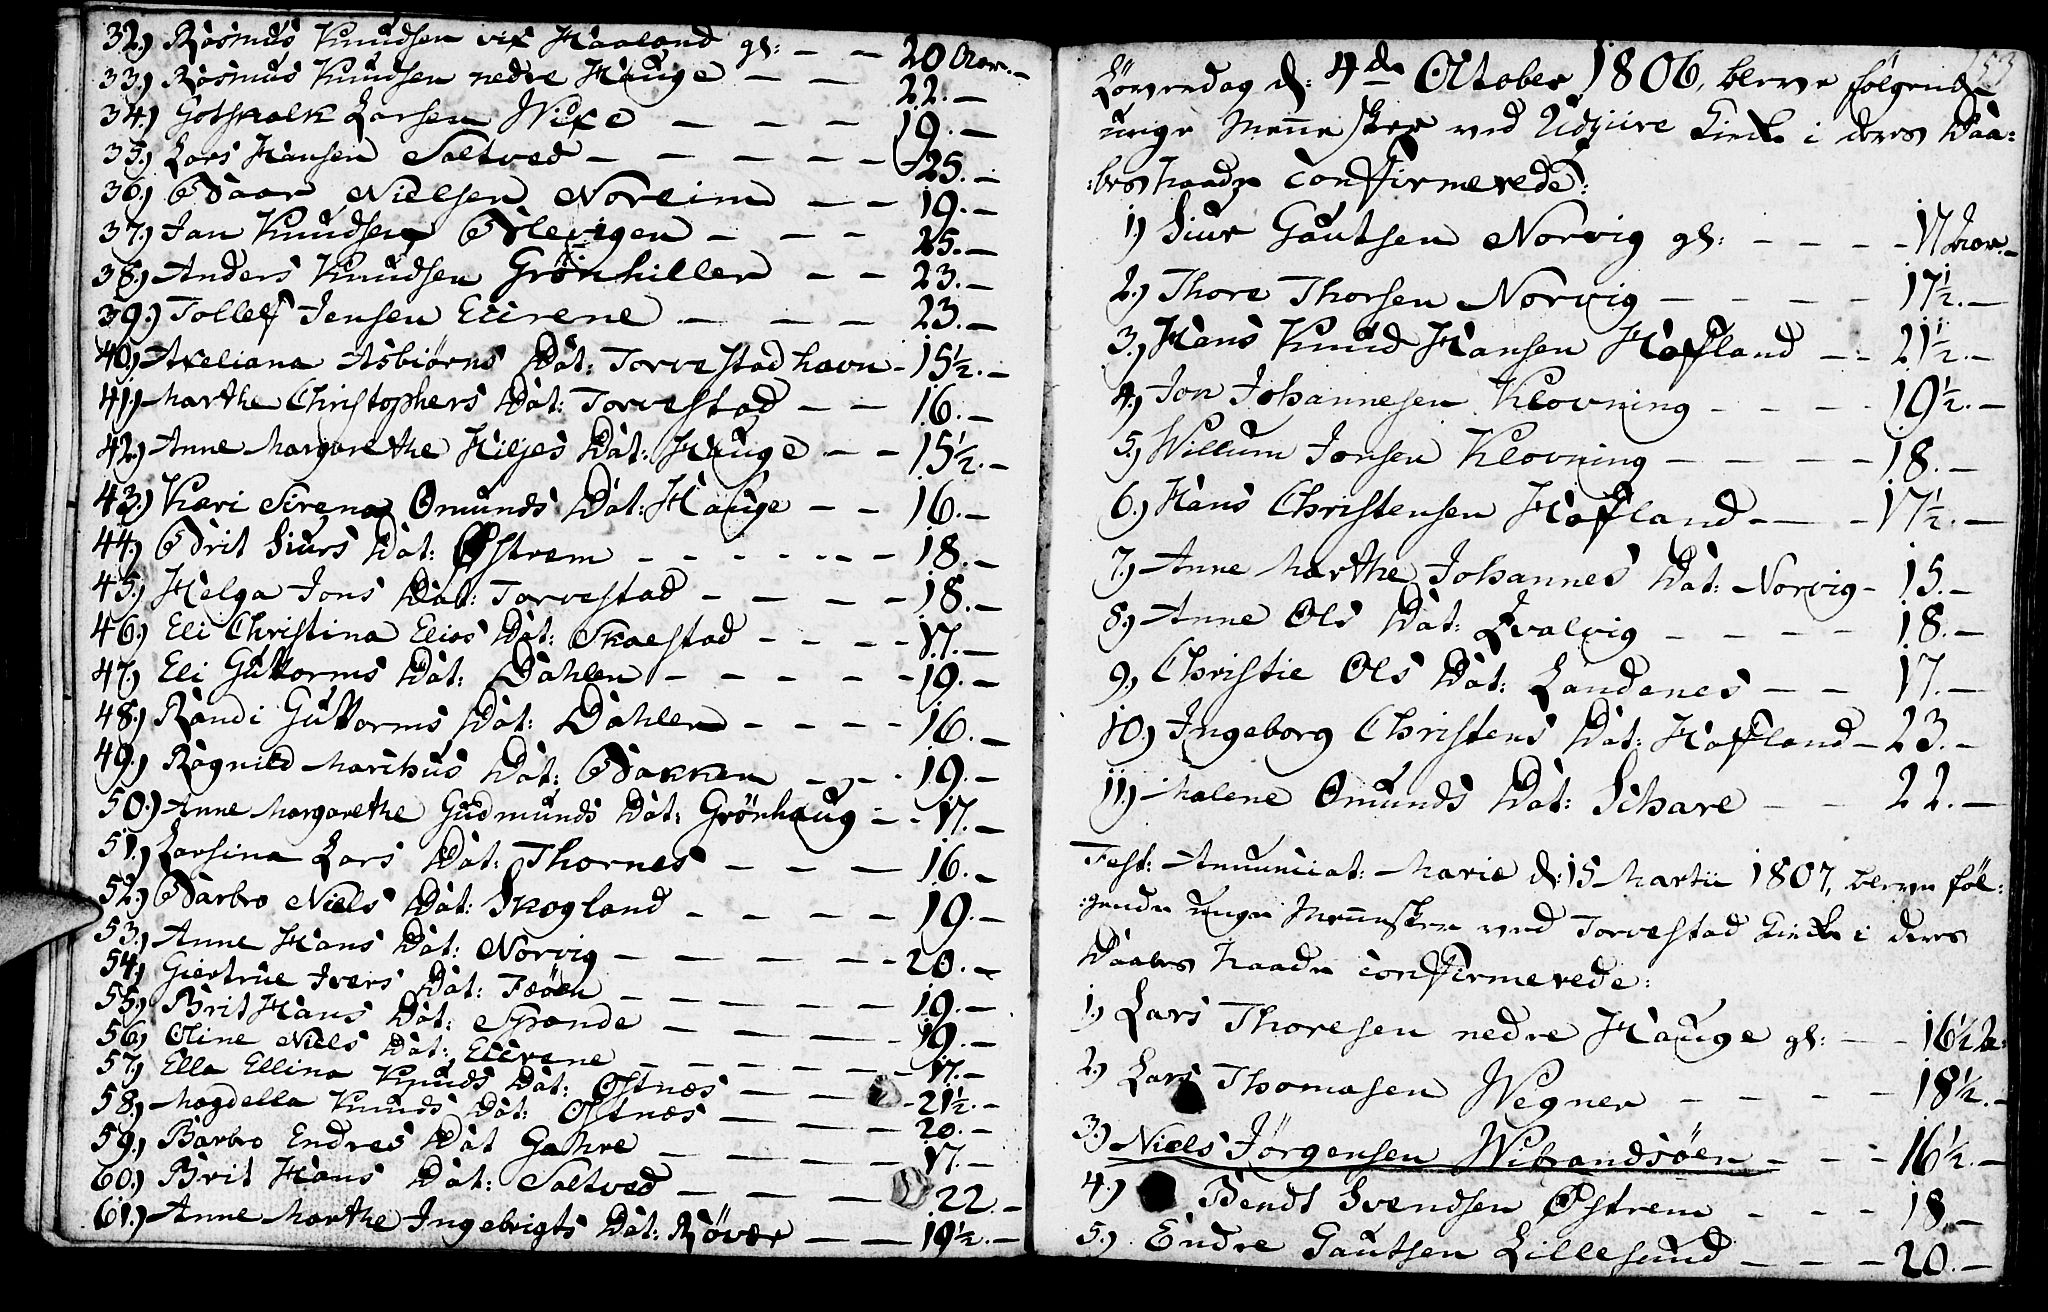 32.) Rasmus Knudsen vif Haaland gl: — — 20 Aar.—
33.) Rasmus Knudsen nedre Hauge — — 22.—
34.) Gotskalk Larsen Wixe — — — 19.—
35.) Lars Hansen Saltved — — — — — 25.—
36.) Baar Nielsen Noreim — — 19.—
37.) Jan Knudsen Blevigen — — — 25.—
38.) Anders Knudsen Grönhiller — — 23.—
39.) Tollef Jensen Eierene — — — 23.—
40.) Axeliana Asbiörns Dat: Torvestad havn — 15½.—
41.) Marthe Christophers Dat: Torvestad — — 16.—
42.) Anne Margarethe Hiljes Dat: Hauge — — 15½.—
43.) Kari Sirena Omunds Dat: Hauge — — 16.—
44.) Brit Siurs Dat: Østrem — — — — — — 18.—
45.) Helga Jons Dat: Torvestad — — — — 18.—
46.) Eli Christina Elias Dat: Skaestad — — — — 17.—
47.) Eli Guttorms Dat: Dahlen — — — — — 19.—
48.) Randi Guttorms Dat: Dahlen — — — — 16.—
49.) Ragnild Marthus Dat: Bakken — — — 19.—
50.) Anne Margarethe Gudmunds Dat: Grönhaug — — 17.—
51.) Larsina Lars Dat: Thornes — — — — 16.—
52.) Barbro Niels Dat: Skogland — — — — 19.—
53.) Anne Hans Dat: Norvig — — — — — 20.—
54.) Giertrue Ivers Dat: Feöen — — — — — 19.—
55.) Brit Hans Dat: Spande — — — — 19.—
56.) Oline Niels Dat: Eierene — — — — — 17.—
57.) Ella Ellina Knuds Dat: Ostnæs — — — 21½.—
58.) Magdella Knuds Dat: Ostnæs — — — — 20.—
59.) Barbro Endres Dat Gahre — — — — — 17.—
60.) Brit Hans Dat: Saltved — — — — 22.—
61.) Anne Marthe Ingebrigts Dat: Rövær — — 19½.—
153
Löverdag d: 4de October 1806, bleve følgende
unge Menne sker ved Udziire Kirke i deres Daa:
:bes Naade Confirmerede:
1.) Siur Gautsen Norvig gl: — — — — 17 Aar.—
2.) Thore Thorsen Norvig — — — — 17½.—
3.) Hans Knud Hansen Hafland — — 21½.—
4.) Jon Johannesen Klovning — — — — 19½.—
5.) Willum Jonsen Klovning — — — — — 18.—
6.) Hans Christensen Hafland — — — 17½.—
7.) Anne Marthe Johannes Dat: Norvig — 15.—
8.) Anne Ols Dat: Qvalvig — — — — 18.—
9.) Christie Ols Dat: Landenes — — 17.—
10.) Ingeborg Christens Dat: Hafland — 23.—
11.) Malene Omunds Dat: Schare — — 22.—
Fest: Annunciat: Mariæ d: 15 Martii 1807, bleve föl:
:gende unge Mennesker ved Torvestad Kirke i deres
Daabes Naade Confirmerede:
1.) Lars Thoresen nedre Hauge gl: — — 16½ A:
2.) Lars Thomasen Wegner — — — — 18½.—
3.) Niels Jörgensen Wibrandsöen — — — 16½.—
4.) Bendt Svendsen Østrem — — — 18.—
5.) Endre Gautsen Lillesund — — — 20.—